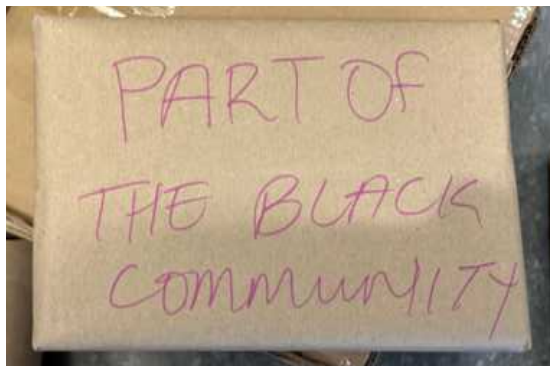 PART OF
THE BLACK
COMMUNITY